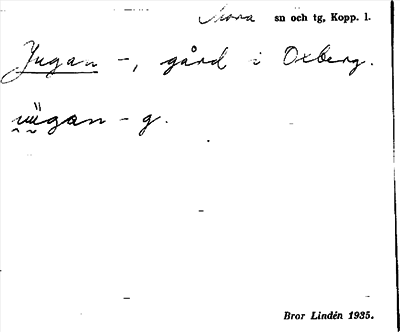 Mora sn och tg, Kopp. l.
Jugan -, gård i Oxberg.
- g.
Bror Lindén 1935.